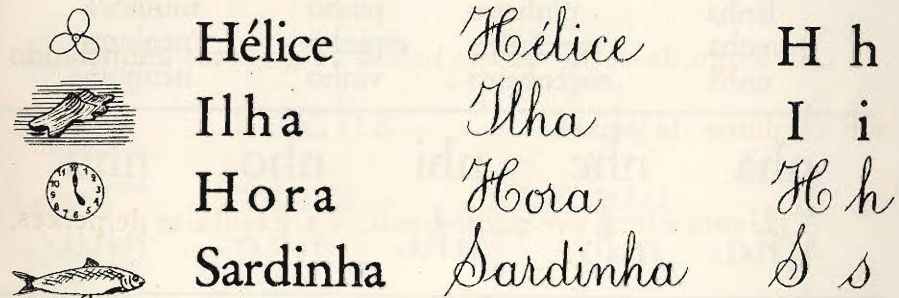 Hélice Hélice H h
Ilha Ilha I i
Hora Hora H h
Sardinha Sardinha S s